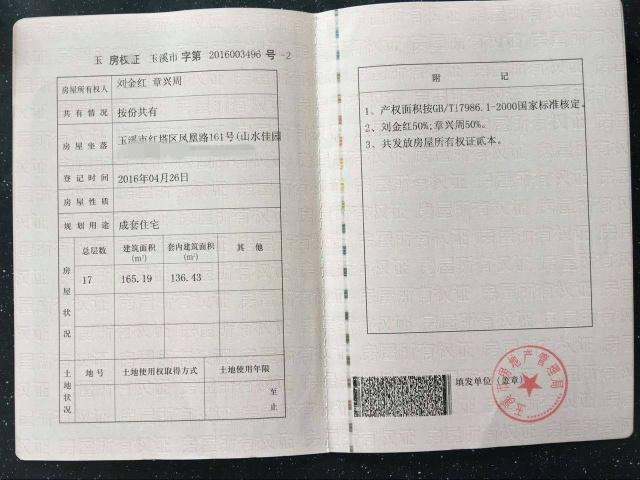 玉 房权证 玉溪市 字第 2016003496 号 -2
房屋所有权人 刘金红 章兴周
共有情况 按份共有
房屋坐落 玉溪市红塔区凤凰路161号(山水佳园
登记时间 2016年04月26日
房屋性质
规划用途 成套住宅
房屋状况
总层数 建筑面积(m²) 套内建筑面积(m²) 其他
17 165.19 136.43
土地状况
地号 土地使用权取得方式 土地使用年限
至
止
附记
1、产权面积按GB/T17986.1-2000国家标准核定。
2、刘金红50%;章兴周50%。
3、共发放房屋所有权证贰本。
填发单位（盖章）
玉溪市房地产管理局